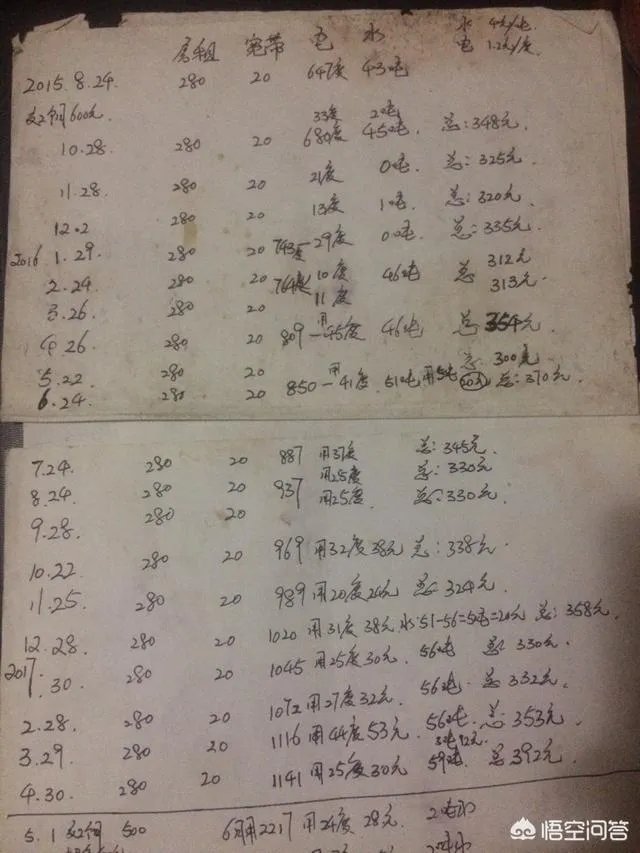 房租 宽带 电 水 水 4元/吨
电 1.2元/度
2015.8.24 280 20 647度 43吨
交2个月600元
33度 2吨
10.28. 280 20 680度 45吨. 总:348元.
11.28. 280 20 21度 0吨. 总:325元.
12.2 280 20 13度 1吨. 总:320元.
2016 1.29. 280 20 743度 29度 00吨. 总:335元.
2.24. 280 20 764度 10度 46吨 总 312元
3.26. 280 20 11度 313元.
4.26. 280 20 809 用45度 46吨 总 354元.
5.22. 280 20 总 300元
6.24. 280 20 850 用41度. 51吨用5吨 总:370元.
7.24. 280 20 887 用37度 总:345元.
8.24. 280 20 937 用25度 总:330元
9.28. 280 20 用25度. 总:330元.
10.22 280 20 969 用32度38元 总:338元.
11.25. 280 20 989 用20度24元 总:324元.
12.28. 280 20 1020 用31度 38元 水:51-56=5吨=20元 总:358元.
2017
1.30. 280 20 1045 用25度30元. 56吨 总 330元.
2.28. 280 20 1072 用27度32元. 56吨. 总:332元.
3.29. 280 20 1116 用44度 53元. 56吨. 总:353元.
3吨12元.
4.30. 280 20 1141 用25度 30元. 59吨. 总 392元.
5.1 交2个月 500 6月用2217 用24度 28元. 2吨水
2吨水
悟空问答